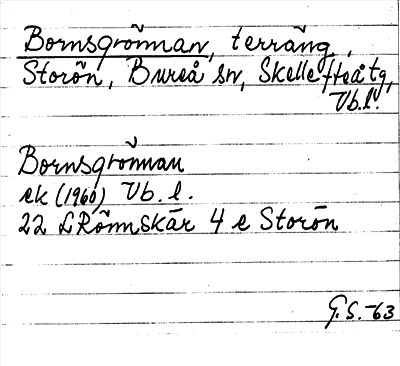 Bornsgrönnan, terräng,
Storön, Bureå sn, Skellefteå tg,
Vb.l.
Bornsgrönnan
ek (1960) Vb. l.
22 L Rönnskär 4 e Storön
G.S.-63